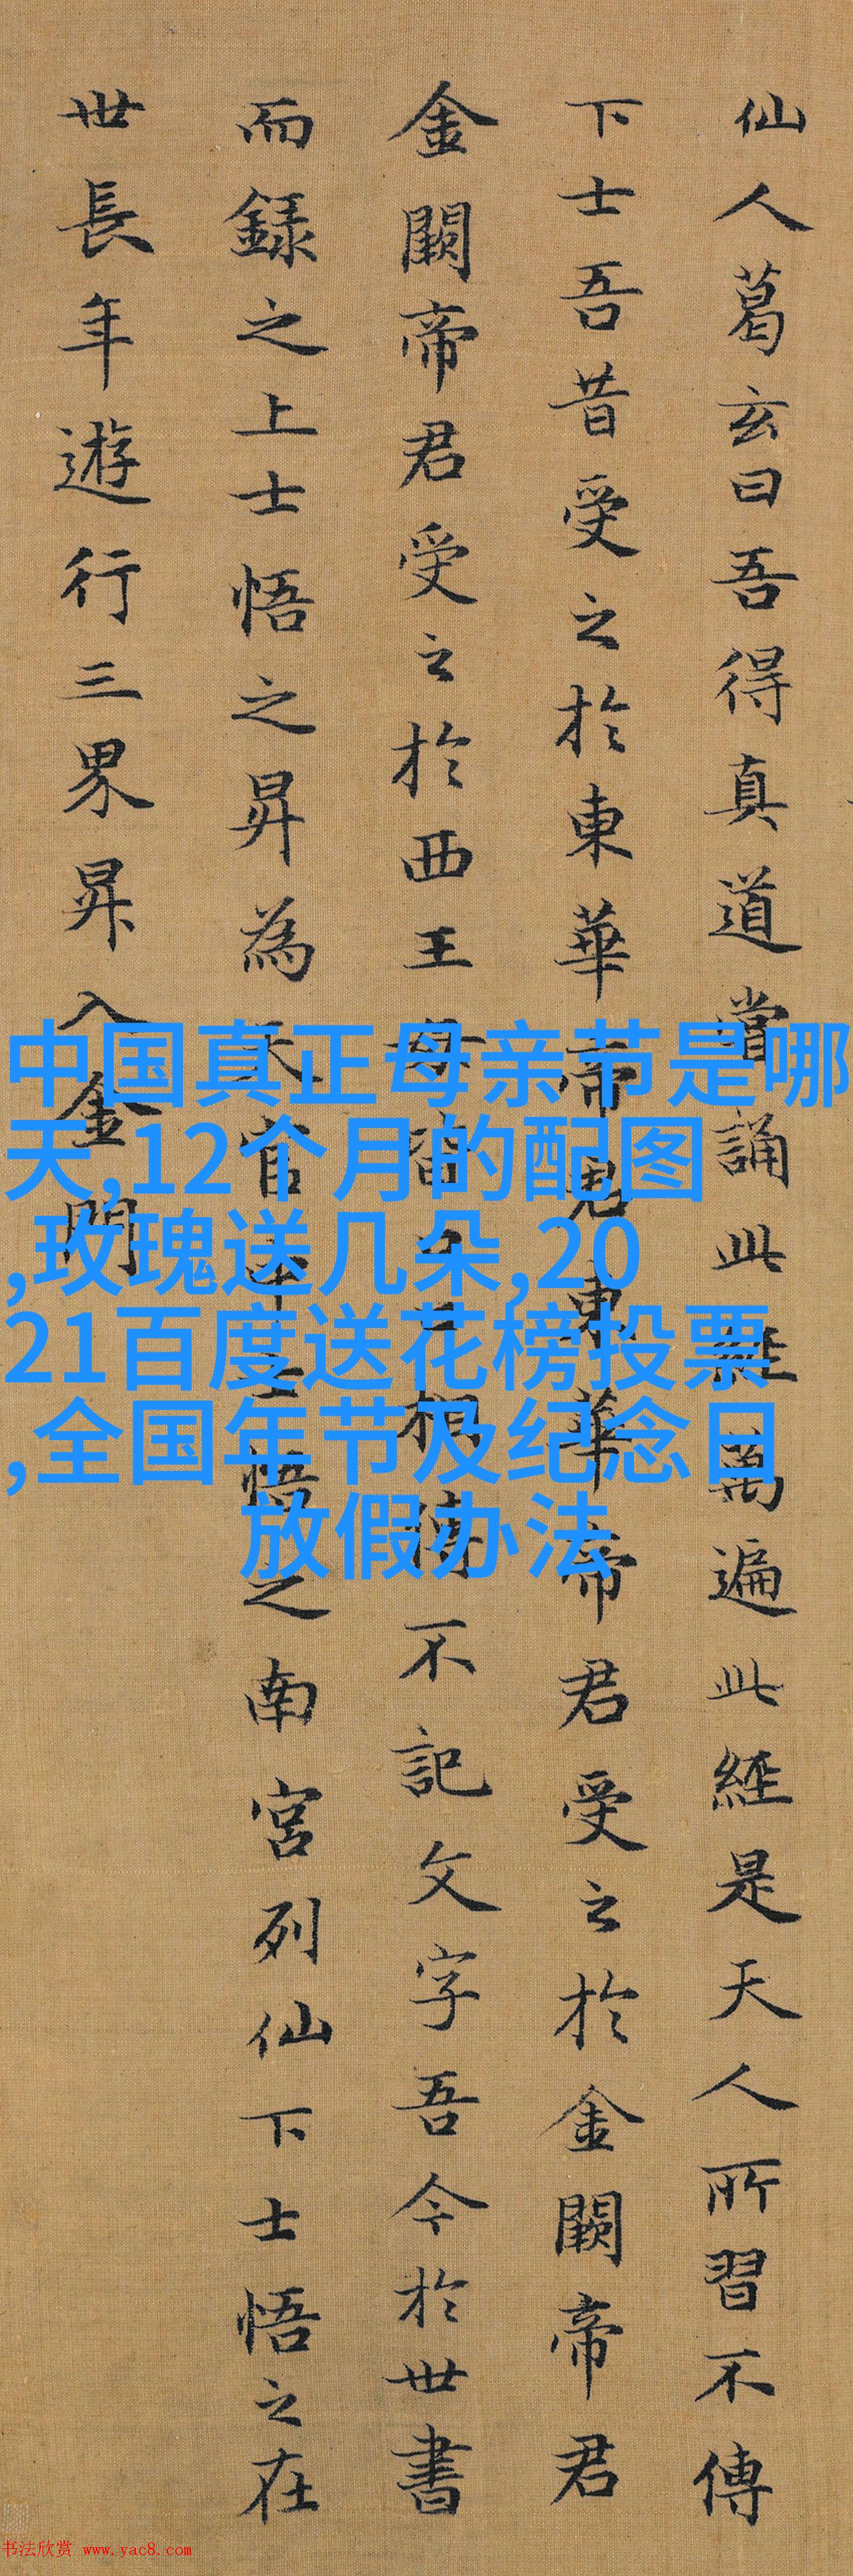 仙人葛玄曰吾得真道當誦此經萬遍此經是天人所習不傳
下士吾昔受之於東華帝君東華帝君受之於金闕帝君
金闕帝君受之於西王母皆口口相傳不記文字吾今於世書
而録之上士悟之昇為天官中士悟之南宮列仙下士悟之在
世長年遊行三界昇入金門
中国真正母亲节是哪
天,12个月的配图
,玫瑰送几朵,20
21百度送花榜投票
,全国年节及纪念日
放假办法
书法欣赏 www.yac8.com